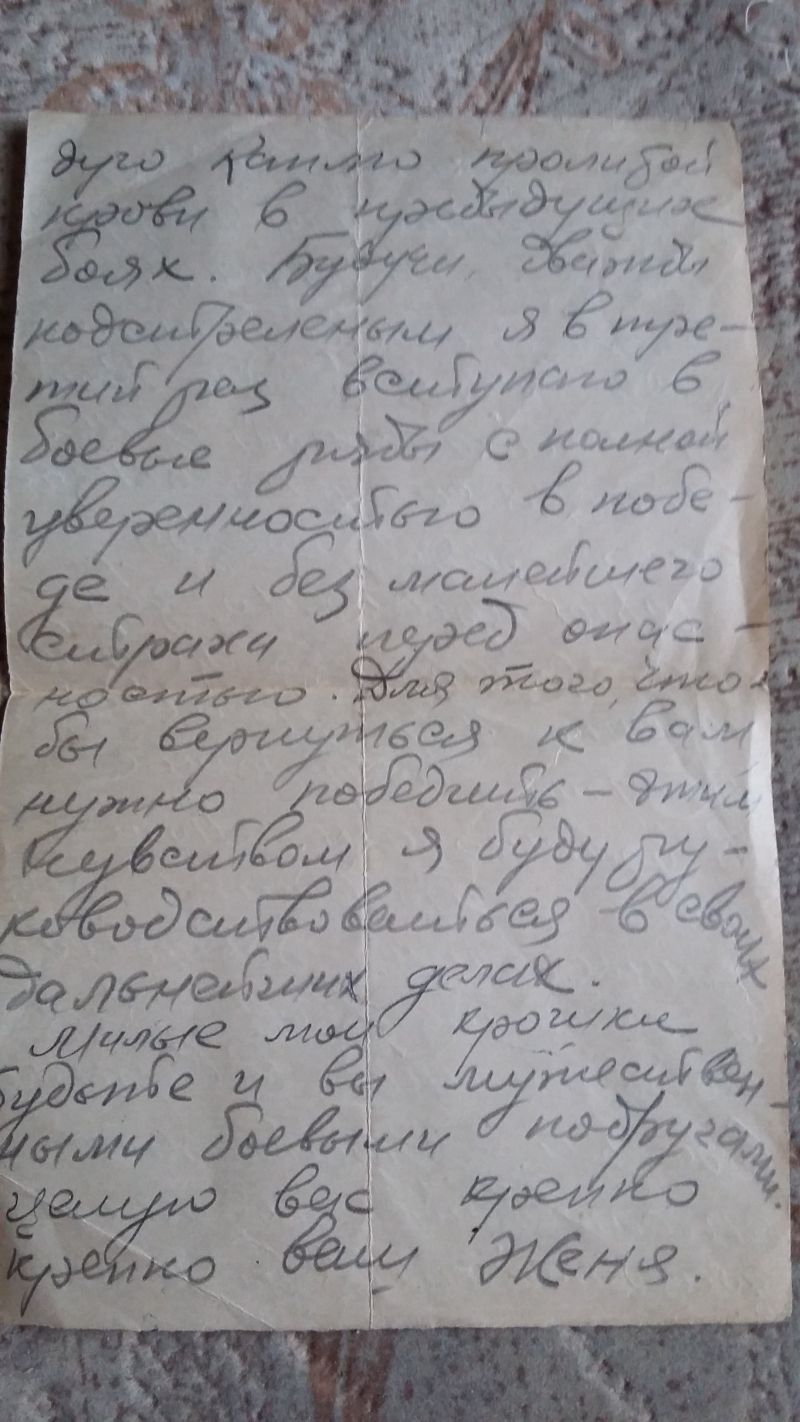 дую каплю пролитой
крови в предыдущих
боях. Будучи дважды
подстреленым я в тре-
тий раз вступаю в
боевые ряды с полной
уверенностью в побе-
де и без малейшего
страха перед опас-
ностью. Для того, что-
бы вернуться к вам
нужно победить – этим
чувством я буду ру-
ководствоваться в своих
дальнейших делах.
Милые мои крошки
будьте и вы мужествен-
ными боевыми подругами.
Целую вас крепко
крепко ваш Женя.